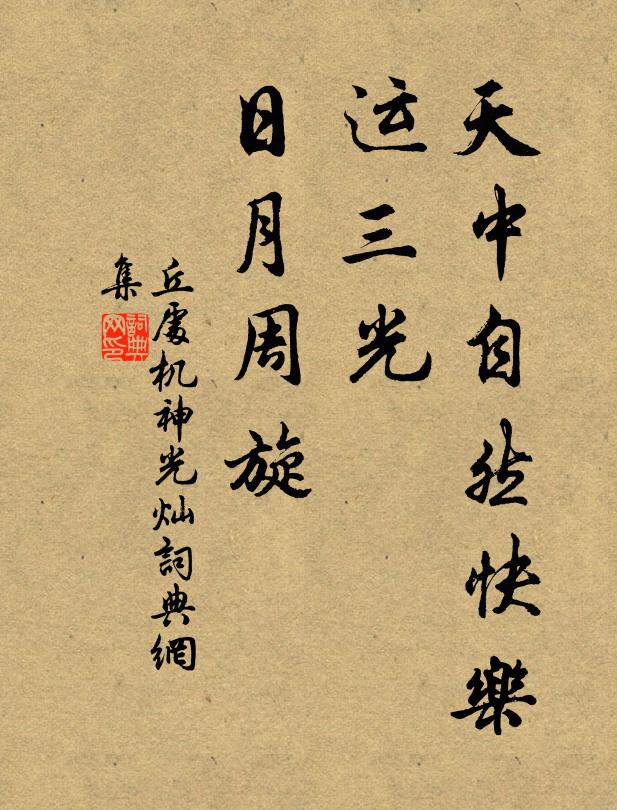 天中自然快樂
运三光
日月周旋
丘處机神光灿詞典網
集
詞典網印